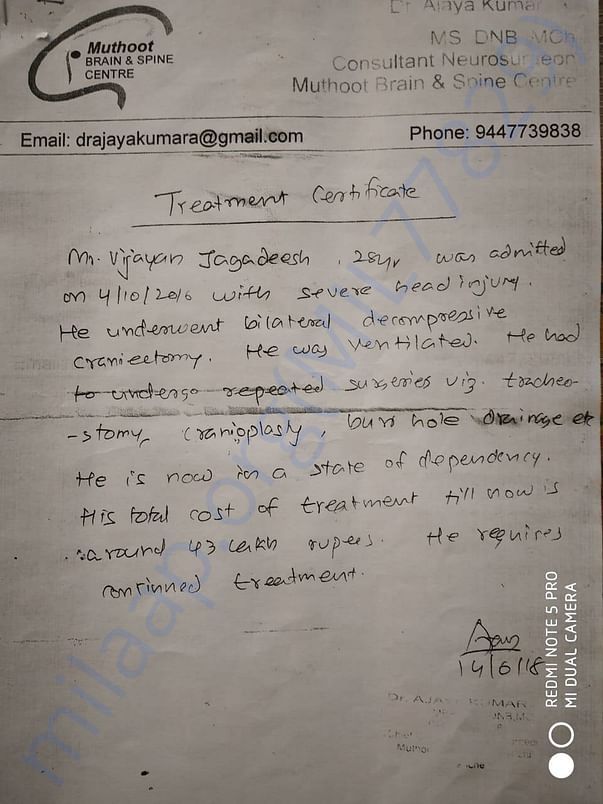 Dr Ajaya Kumar
MS DNB MCh
Consultant Neurosurgeon
Muthoot Brain & Spine Centre
Muthoot
BRAIN & SPINE
CENTRE
Email: drajayakumara@gmail.com
Phone: 9447739838
Treatment Certificate
Mr. Vijayan Jagadeesh, 28yr was admitted
on 4/10/2016 with severe head injury.
He underwent bilateral decompressive
craniectomy. He was ventilated. He had
to undergo repeated surgeries viz. tracheo-
-stomy, cranioplasty, burr hole drainage etc
He is now in a state of dependency.
His total cost of treatment till now is
around 43 lakh rupees. He requires
continued treatment.
14/6/18
Dr. AJAY KUMAR
milaap.org
REDMI NOTE 5 PRO
MI DUAL CAMERA